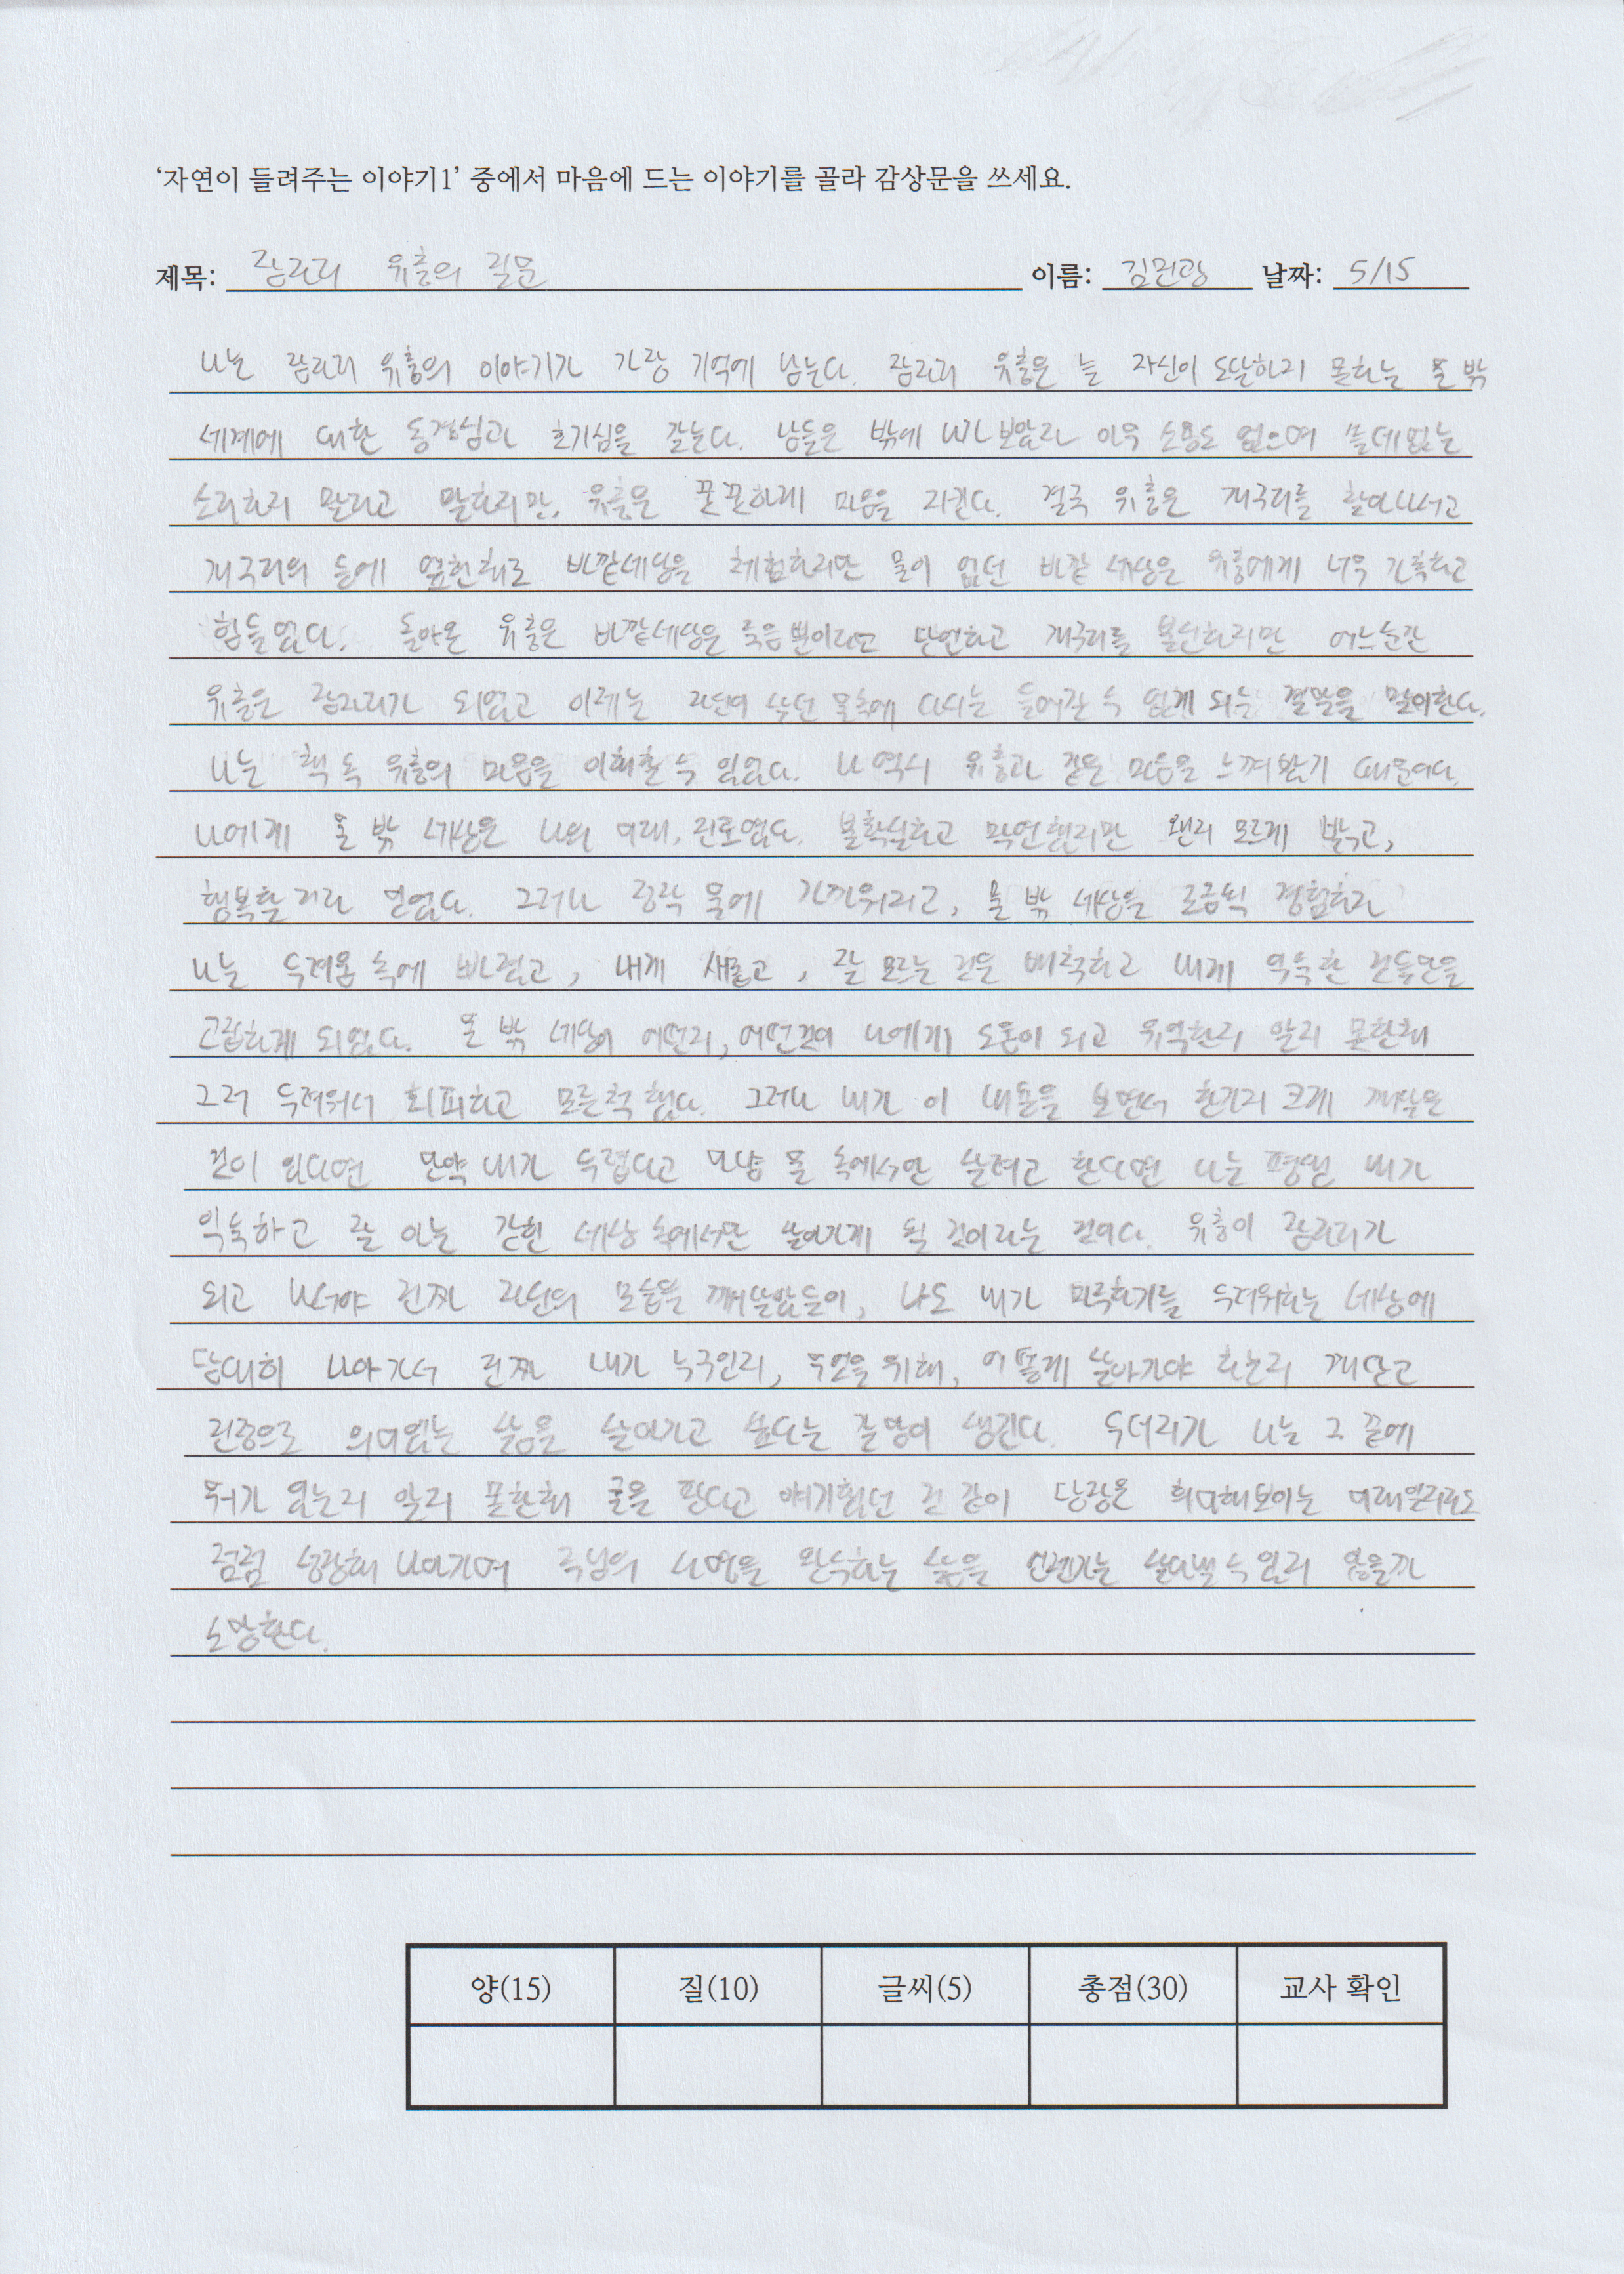 '자연이 들려주는 이야기1' 중에서 마음에 드는 이야기를 골라 감상문을 쓰세요.
제목: 잠자리 유충의 질문 이름: 김진광 날짜: 5/15
나는 잠자리 유충의 이야기가 가장 기억에 남는다. 잠자리 유충은 늘 자신이 도달하지 못하는 물 밖
세계에 대한 동경심과 호기심을 갖는다. 남들은 밖에 나가 보았자 아무 소용도 없으며 쓸데없는
소리하지 말라고 말하지만, 유충은 꿋꿋하게 마음을 지킨다. 결국 유충은 개구리를 찾아나서고
개구리의 등에 옆힌채로 바깥세상을 체험하지만 물이 없던 바깥 세상은 유충에게 너무 가혹하고
힘들었다. 돌아온 유충은 바깥세상은 죽음뿐이라고 단언하고 개구리를 불신하지만 어느순간
유충은 잠자리가 되었고 이제는 자신이 살던 물속에 다시는 들어갈 수 없게 되는 결말을 맞이한다.
나는 책 속 유충의 마음을 이해할 수 있었다. 나 역시 유충과 같은 마음을 느껴봤기 때문이다.
나에게 물 밖 세상은 나의 미래, 진로였다. 불확실하고 막연했지만 왠지 모르게 밝고,
행복할 거라 믿었다. 그러나 정작 물에 가까워지고, 물 밖 세상을 조금씩 경험하자
나는 두려움 속에 빠졌고, 내게 새롭고, 잘 모르는 것은 배척하고 내게 익숙한 것들만을
고집하게 되었다. 물 밖 세상이 어떤지, 어떤것이 나에게 도움이 되고 유익한지 알지 못한채
그저 두려워서 회피하고 모른척 했다. 그러나 내가 이 내용을 보면서 한가지 크게 깨달은
것이 있다면 만약 내가 두렵다고 마냥 물 속에서만 살려고 한다면 나는 평생 내가
익숙하고 잘 아는 갇힌 세상 속에서만 살아가게 될 것이라는 것이다. 유충이 잠자리가
되고 나서야 진짜 자신의 모습을 깨달았듯이, 나도 내가 마주하기를 두려워하는 세상에
담대히 나아가서 진짜 내가 누구인지, 무엇을 위해, 어떻게 살아가야 하는지 깨닫고
진정으로 의미있는 삶을 살아가고 싶다는 갈망이 생긴다. 두더지가 나는 그 끝에
뭐가 있는지 알지 못한채 굴을 판다고 얘기했던 것 같이 당장은 희미해보이는 미래일지라도
점점 성장해 나아가며 주님의 사명을 완수하는 삶을 언젠가는 살아낼 수 있지 않을까
소망한다.
양(15) 질(10) 글씨(5) 총점(30) 교사 확인